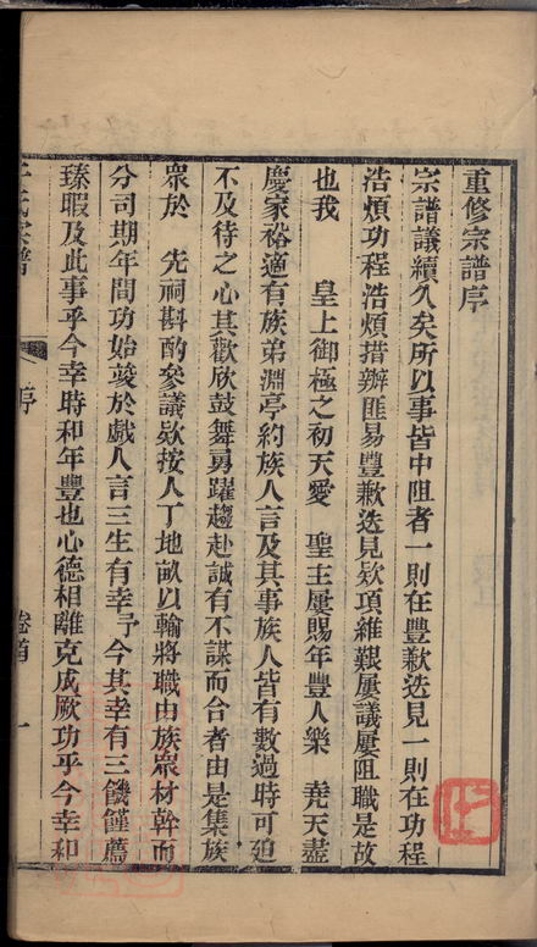 重修宗譜序
宗譜議續久矣所以事皆中阻者一則在豐歉迭見一則在功程
浩煩功程浩煩措辦匪易豐歉迭見欵項維艱屢議屢阻職是故
也我　皇上御極之初天愛　聖主屢賜年豐人樂　堯天盡
慶家裕適有族弟淵亭約族人言及其事族人皆有數過時可廹
不及待之心其歡欣鼓舞勇躍趨赴誠有不謀而合者由是集族
衆於　先祠斟酌參議欵按人丁地畝以輸將職由族衆材幹而
分司期年間功始竣於戲人言三生有幸予今其幸有三饑饉薦
臻暇及此事乎今幸時和年豐也心德相離克成厥功乎今幸和
氏宗譜
序
卷首
一